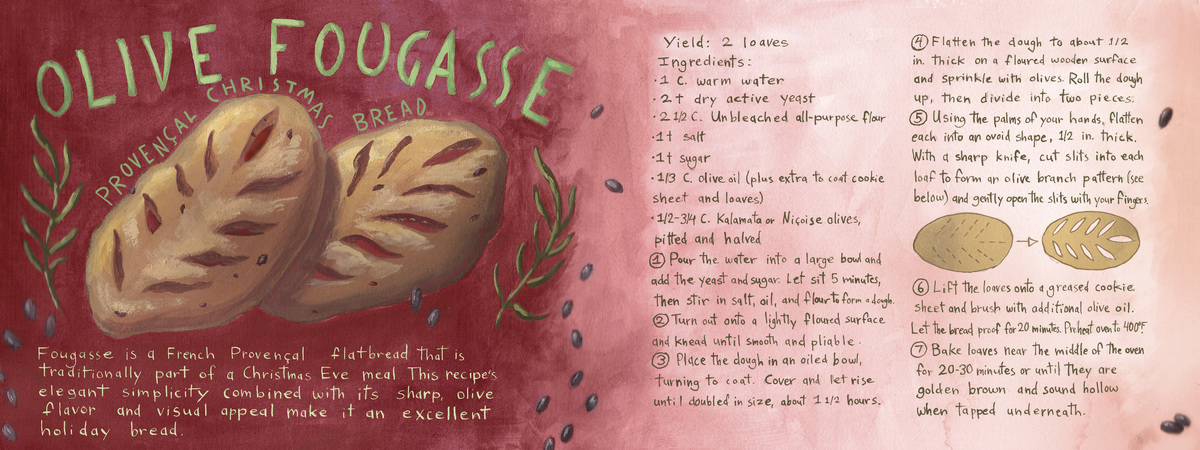 OLIVE FOUGASSE
PROVENÇAL CHRISTMAS BREAD
Fougasse is a French Provençal flatbread that is
traditionally part of a Christmas Eve meal. This recipe's
elegant simplicity combined with its sharp, olive
flavor and visual appeal make it an excellent
holiday bread.
Yield: 2 loaves
Ingredients:
· 1 C. warm water
· 2 t dry active yeast
· 2 1/2 C. Unbleached all-purpose flour
· 1 t salt
· 1 t sugar
· 1/3 C. olive oil (plus extra to coat cookie
sheet and loaves)
· 1/2-3/4 C. Kalamata or Niçoise olives,
pitted and halved
① Pour the water into a large bowl and
add the yeast and sugar. Let sit 5 minutes,
then stir in salt, oil, and flour to form a dough.
② Turn out onto a lightly floured surface
and knead until smooth and pliable.
③ Place the dough in an oiled bowl,
turning to coat. Cover and let rise
until doubled in size, about 1 1/2 hours.
④ Flatten the dough to about 1/2
in. thick on a floured wooden surface
and sprinkle with olives. Roll the dough
up, then divide into two pieces.
⑤ Using the palms of your hands, flatten
each into an ovoid shape, 1/2 in. thick.
With a sharp knife, cut slits into each
loaf to form an olive branch pattern (see
below) and gently open the slits with your fingers.
⑥ Lift the loaves onto a greased cookie
sheet and brush with additional olive oil.
Let the bread proof for 20 minutes. Preheat oven to 400°F
⑦ Bake loaves near the middle of the oven
for 20-30 minutes or until they are
golden brown and sound hollow
when tapped underneath.